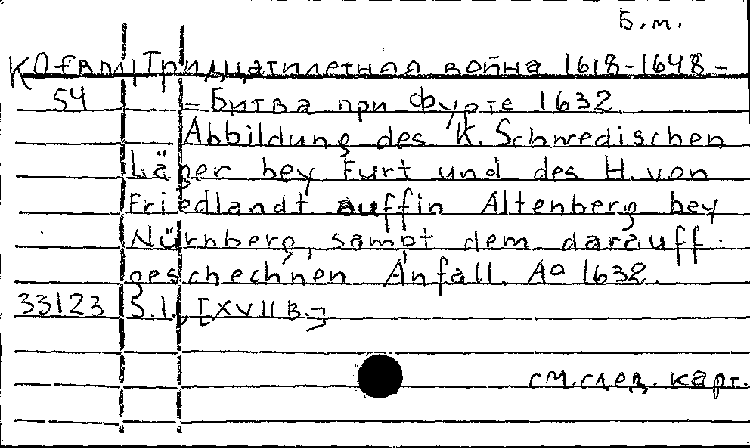 Б.м.
Тридцатилетняя война 1618-1648 -
54 - Битва при Фурте 1632
Abbildung des K. Schwedischen
Läger bey Furt und des H. von
Friedlandt auffin Altenberg bey
Nürnberg, sampt dem darauff
geschechnen Anfall. Aº 1632.
33123 S.l., [XVII в.]
см. след. карт.